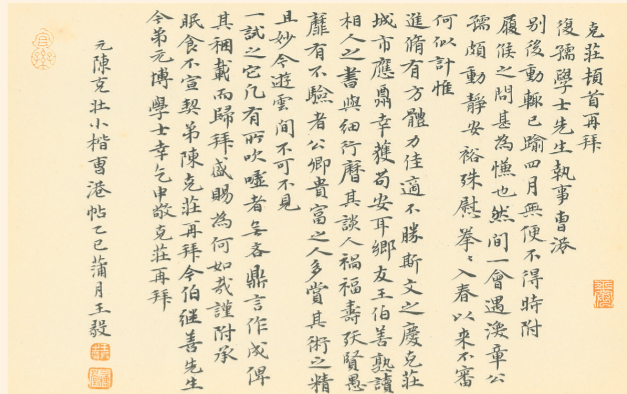 克莊頓首再拜
復孺學士先生執事曹港
别後動輒已踰四月無便不得時附
履候之問甚為慊也然間一會遇澂章公
孺頗動靜安裕殊慰拳〻入春以來不審
何似計惟
進脩有方體力佳適不勝斯文之慶克莊
城市應鼎幸獲苟安耳鄉友王伯善熟讀
相人之書與細行曆其談人禍福壽殀賢愚
靡有不驗者公卿貴富之人多賞其術之精
且妙今遊雲間不可不見
一試之它凡有所吹噓者無吝鼎言作成俾
其稇載而歸拜〻盛賜為何如哉謹附承
眠食不宣契弟陳克莊再拜今伯继善先生
令弟元博學士幸乞申敬克莊再拜
元陳克壯小楷曹港帖乙巳蒲月王毅